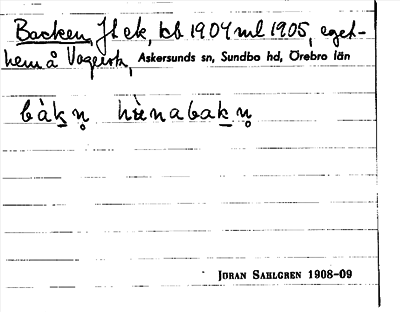 Backen, Jl ek, bb 1904 ml 1905, eget-
hem å Vageröta, Askersunds sn, Sundbo hd, Örebro län
bàkn̥ hùnabakn̥
JÖRAN SAHLGREN 1908-09